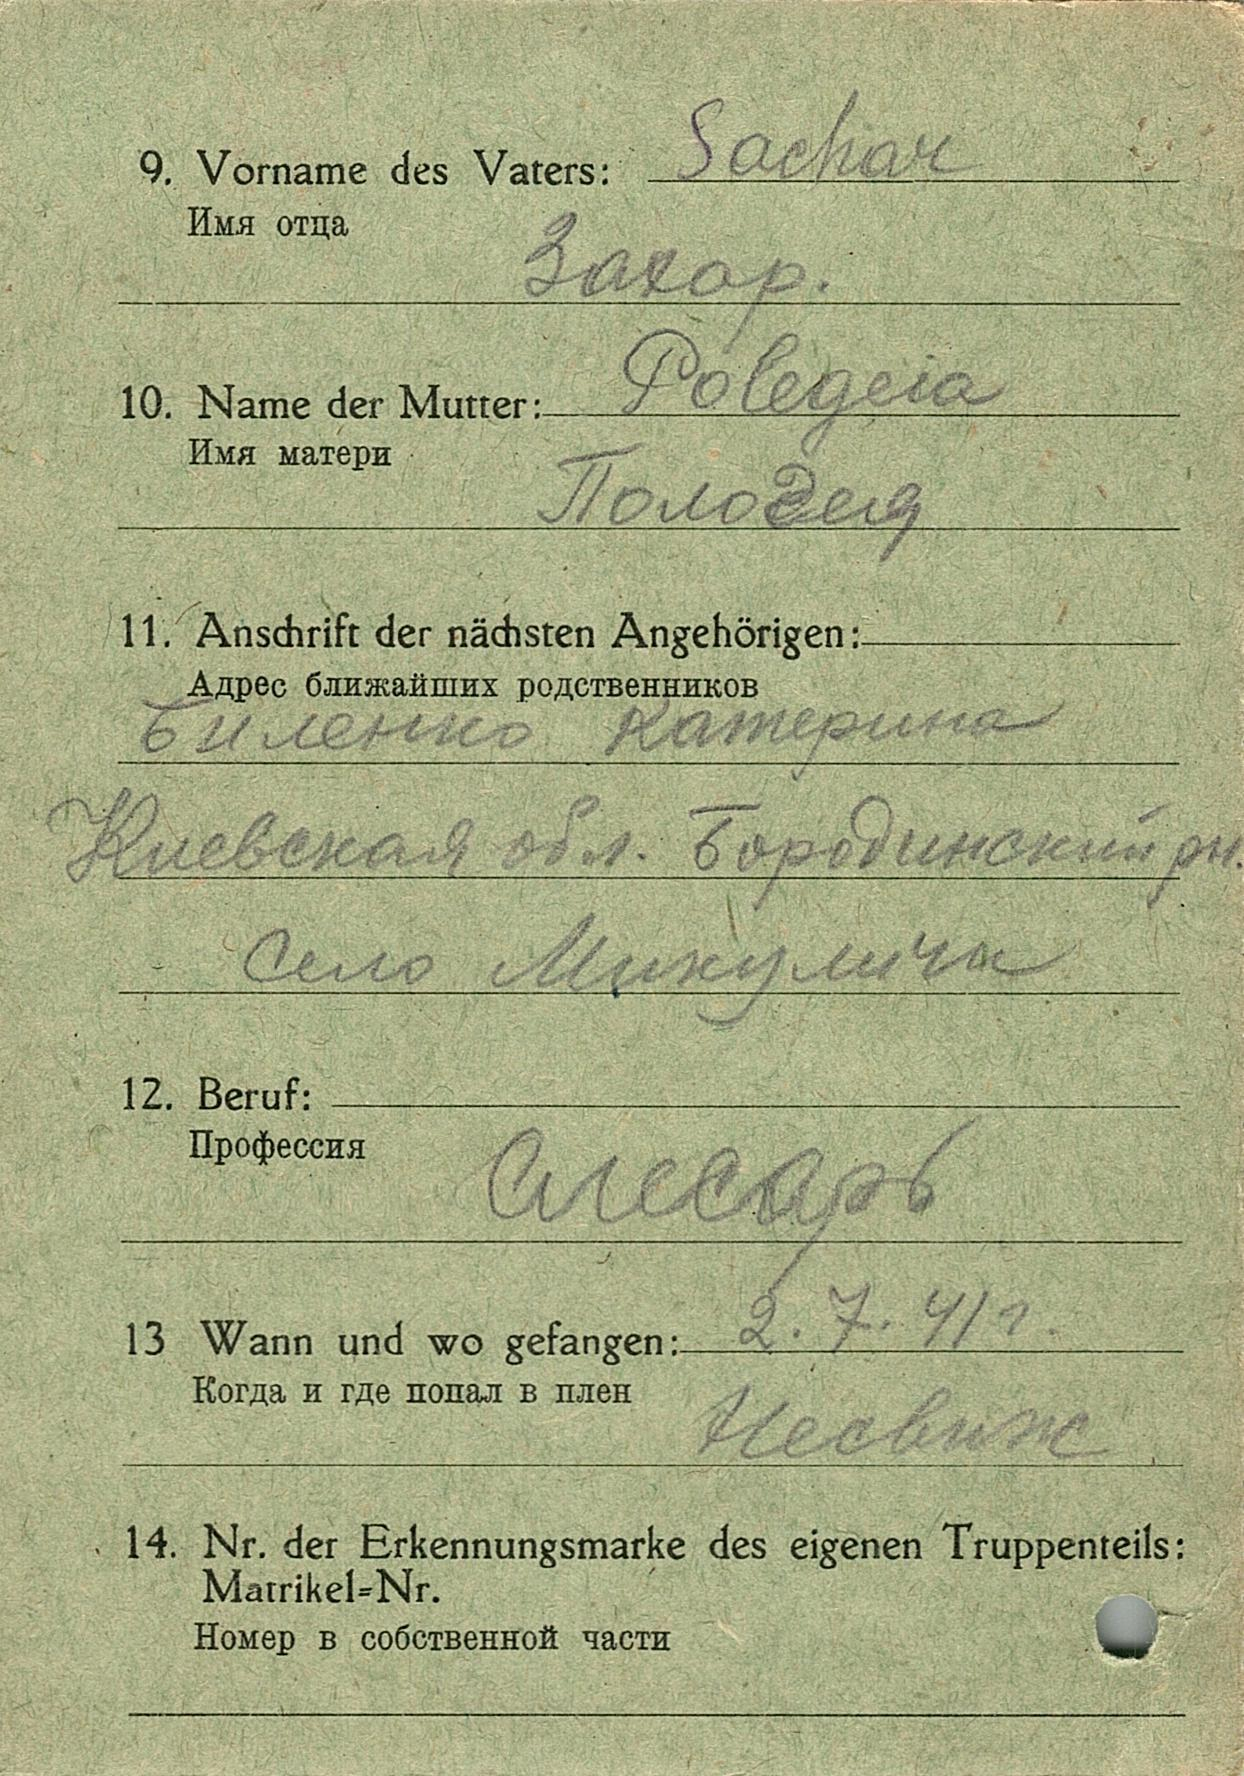 9. Vorname des Vaters: Sachar
Имя отца
Захор.
10. Name der Mutter: Polegeia
Имя матери
Пологея
11. Anschrift der nächsten Angehörigen:
Адрес ближайших родственников
Биленко Катерина
Киевская обл. Бородинский рн.
Село Микуличи
12. Beruf:
Профессия
Слесарь
13 Wann und wo gefangen: 2. 7. 41 г.
Когда и где попал в плен
Несвиж
14. Nr. der Erkennungsmarke des eigenen Truppenteils:
Matrikel=Nr.
Номер в собственной части